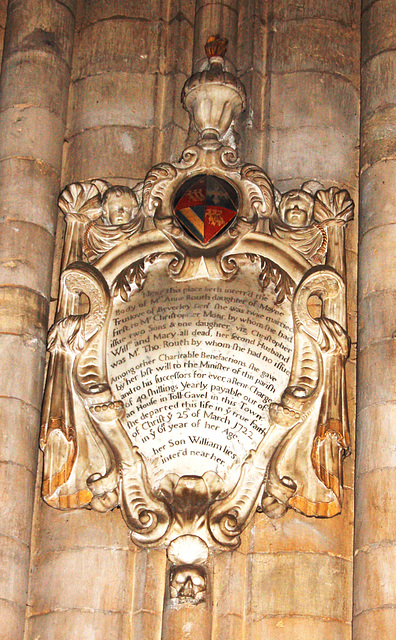 Near this place lieth inter'd the
Body of Mrs Anne Routh daughter of Major
Truslove of Beverley Gent she was twice married
first to Mr Christopher Mund by whom she had
issue two Sons & one daughter, viz, Christopher
Willm and Mary all dead, her second Husband
was Mr Tho Routh by whom she had no issue
Among other Charitable Benefactions she gave
by her last will to the Minister of this parish
and to his successors for ever a Rent Charge
of 40 shillings Yearly payable out of
an House in Toll-Gavel in this Town
She departed this life in ye true faith
of Christ ye 25 of March 1722
in ye 61 year of her Age
her Son William lies
inter'd near her